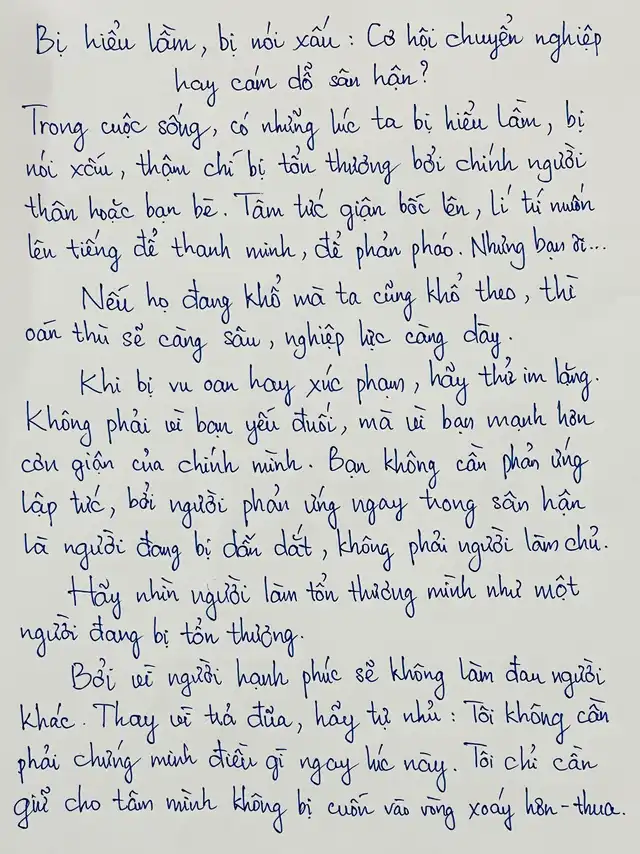 Bị hiểu lầm, bị nói xấu: Cơ hội chuyển nghiệp
hay cám dỗ sân hận?
Trong cuộc sống, có những lúc ta bị hiểu lầm, bị
nói xấu, thậm chí bị tổn thương bởi chính người
thân hoặc bạn bè. Tâm tức giận bốc lên, lí trí muốn
lên tiếng để thanh minh, để phản pháo. Nhưng bạn ơi...
Nếu họ đang khổ mà ta cũng khổ theo, thì
oán thù sẽ càng sâu, nghiệp lực càng dày.
Khi bị vu oan hay xúc phạm, hãy thử im lặng.
Không phải vì bạn yếu đuối, mà vì bạn mạnh hơn
cơn giận của chính mình. Bạn không cần phản ứng
lập tức, bởi người phản ứng ngay trong sân hận
là người đang bị dẫn dắt, không phải người làm chủ.
Hãy nhìn người làm tổn thương mình như một
người đang bị tổn thương.
Bởi vì người hạnh phúc sẽ không làm đau người
khác. Thay vì trả đũa, hãy tự nhủ: Tôi không cần
phải chứng minh điều gì ngay lúc này. Tôi chỉ cần
giữ cho tâm mình không bị cuốn vào vòng xoáy hơn-thua.